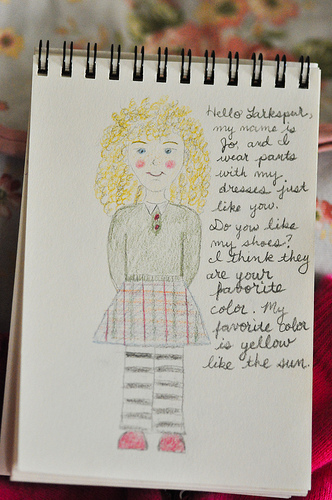 Hello Larkspur,
my name is
Jo, and I
wear pants
with my
dresses just
like you.
Do you like
my shoes?
I think they
are your
favorite
color. My
favorite color
is yellow
like the sun.